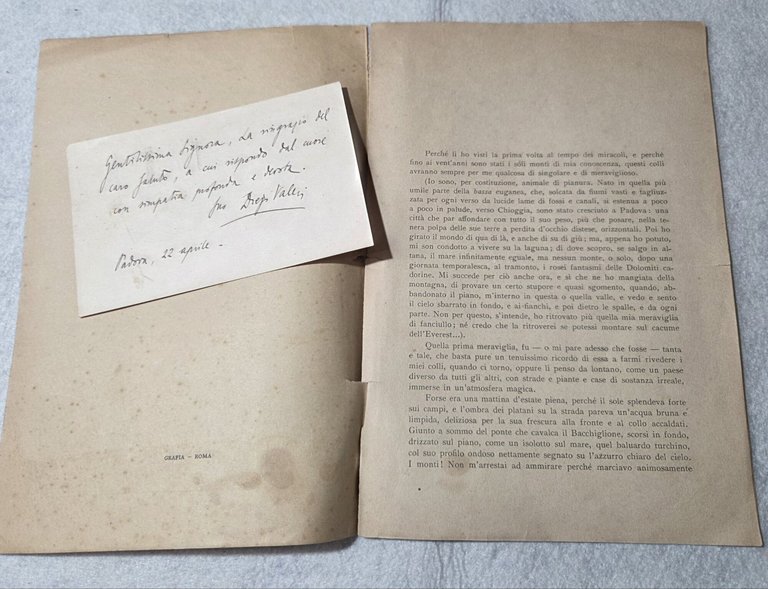 Gentilissima Signora, La ringrazio del
caro saluto, a cui rispondo dal cuore
con simpatia profonda e devota.
Suo Diego Valeri
Padova, 22 aprile.
GRAFIA — ROMA
Perché li ho visti la prima volta al tempo dei miracoli, e perché
fino ai vent'anni sono stati i sóli monti di mia conoscenza, questi colli
avranno sempre per me qualcosa di singolare e di meraviglioso.
(Io sono, per costituzione, animale di pianura. Nato in quella più
umile parte della bassa euganea, che, solcata da fiumi vasti e tagliuz-
zata per ogni verso da lucide lame di fossi e canali, si estenua a poco
a poco in palude, verso Chioggia, sono stato cresciuto a Padova: una
città che par affondare con tutto il suo peso, più che posare, nella te-
nera polpa delle sue terre a perdita d'occhio distese, orizzontali. Poi ho
girato il mondo di qua di là, e anche di su di giù; ma, appena ho potuto,
mi son condotto a vivere su la laguna; di dove scopro, se salgo in al-
tana, il mare infinitamente eguale, ma nessun monte, o solo, dopo una
giornata temporalesca, al tramonto, i rosei fantasmi delle Dolomiti ca-
dorine. Mi succede per ciò anche ora, e sì che ne ho mangiata della
montagna, di provare un certo stupore e quasi sgomento, quando, ab-
bandonato il piano, m'interno in questa o quella valle, e vedo e sento
il cielo sbarrato in fondo, e ai fianchi, e poi dietro le spalle, e da ogni
parte. Non per questo, s'intende, ho ritrovato più quella mia meraviglia
di fanciullo; né credo che la ritroverei se potessi montare sul cacume
dell'Everest...).
Quella prima meraviglia, fu — o mi pare adesso che fosse — tanta
e tale, che basta pure un tenuissimo ricordo di essa a farmi rivedere i
miei colli, quando ci torno, oppure li penso da lontano, come un paese
diverso da tutti gli altri, con strade e piante e case di sostanza irreale,
immerse in un'atmosfera magica.
Forse era una mattina d'estate piena, perché il sole splendeva forte
sui campi, e l'ombra dei platani su la strada pareva un'acqua bruna e
limpida, deliziosa per la sua frescura alla fronte e al collo accaldati.
Giunto a sommo del ponte che cavalca il Bacchiglione, scorsi in fondo,
drizzato sul piano, come un isolotto sul mare, quel baluardo turchino,
col suo profilo ondoso nettamente segnato su l'azzurro chiaro del cielo.
I monti! Non m'arrestai ad ammirare perché marciavo animosamente